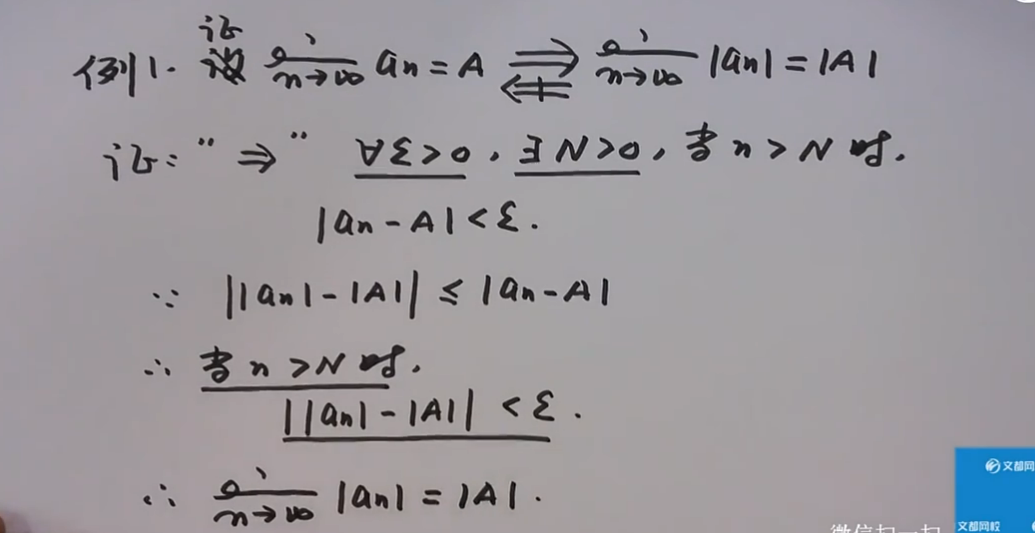 例1. 证 lim n→∞ an = A ⇒ ⇍ lim n→∞ |an| = |A|
证: "⇒" ∀ε>0, ∃N>0, 当n>N时,
|an-A|<ε.
∵ ||an|-|A|| ≤ |an-A|
∴ 当n>N时,
||an|-|A|| <ε.
∴ lim n→∞ |an| = |A|.
文都网
文都网校
微信扫一扫